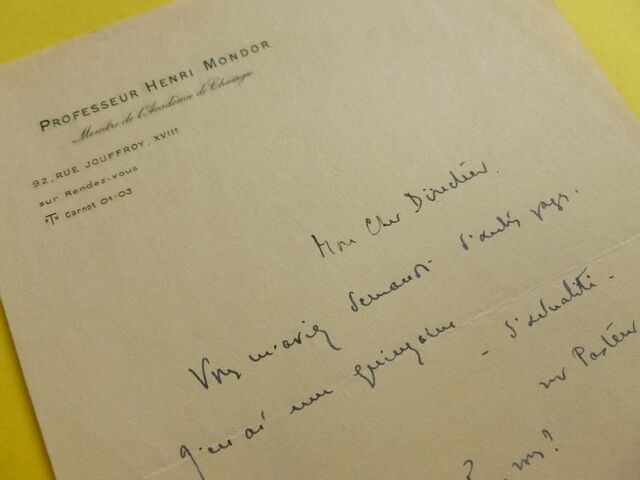 PROFESSEUR HENRI MONDOR
Membre de l'Académie de Chirurgie
92, RUE JOUFFROY, XVIIe
sur Rendez-vous
"T" Carnot 01-03
Mon Cher Directeur.
Vous m'aviez demandé d'autres pages.
J'en ai une quinzaine - d'actualité -
sur Pasteur
vous?